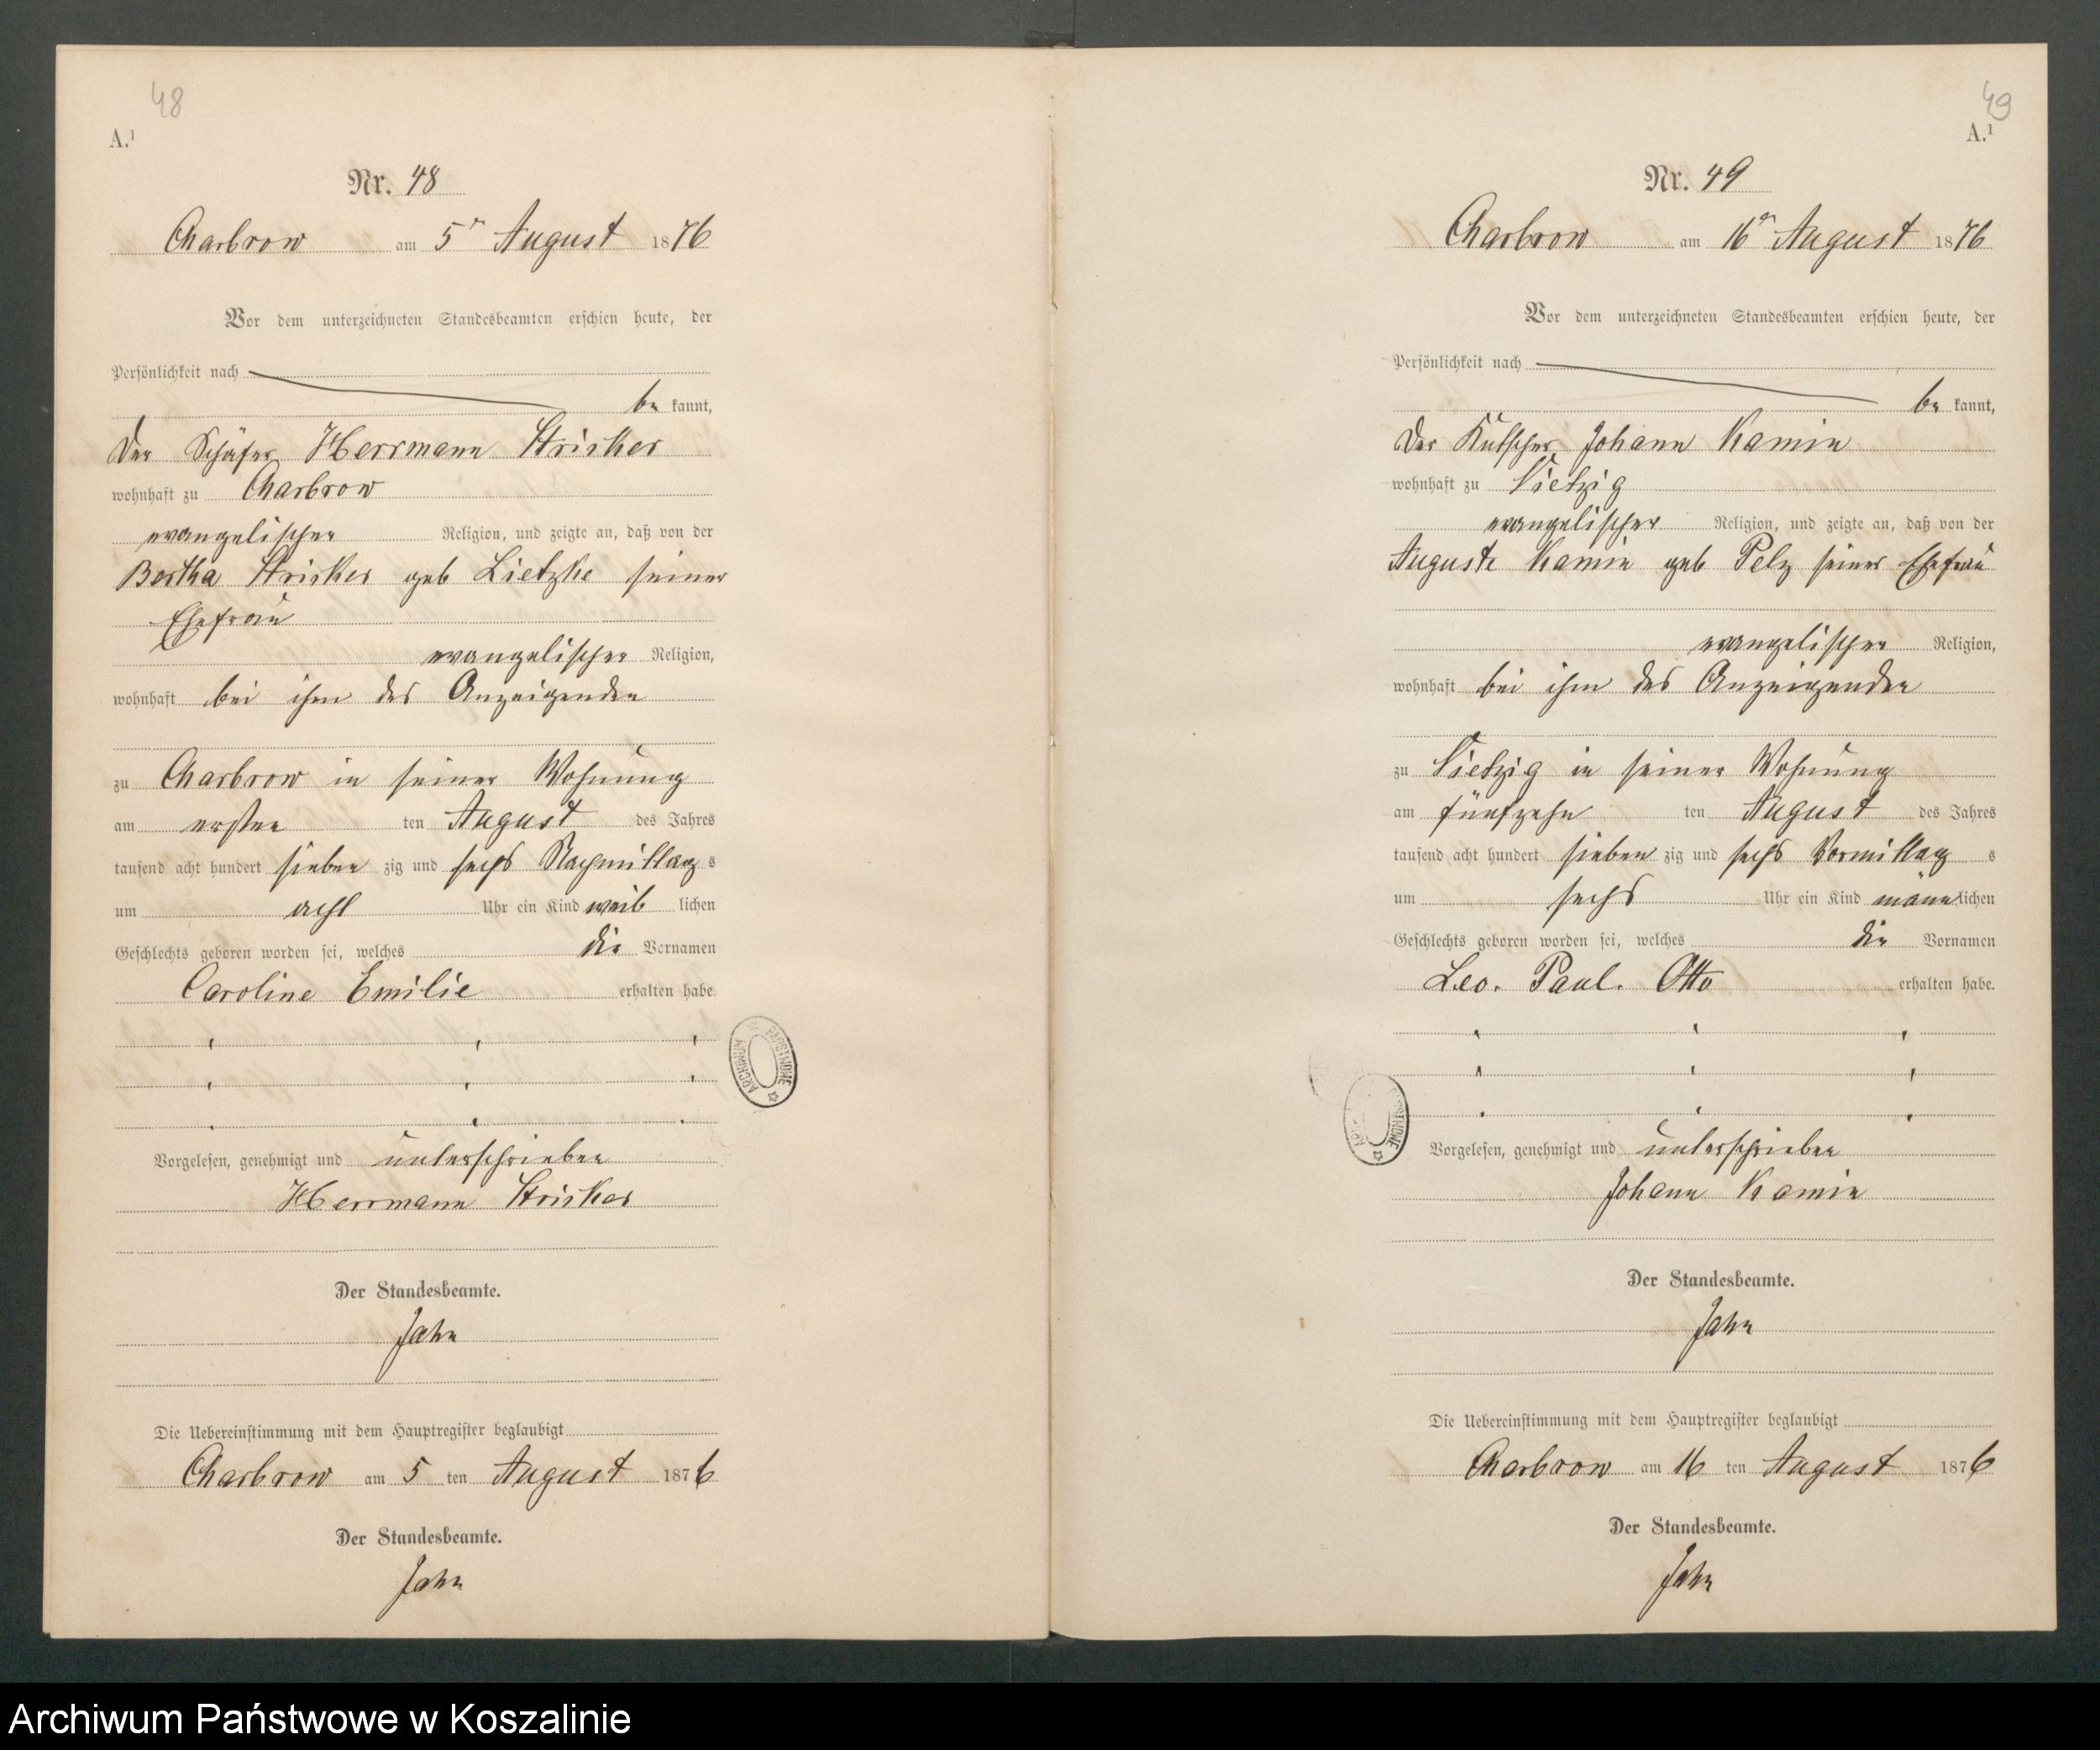 48
A.¹
Nr. 48
Charbrow am 5ⁿ August 1876
Vor dem unterzeichneten Standesbeamten erschien heute, der
Persönlichkeit nach
be kannt,
Der Schäfer Herrmann Strisker
wohnhaft zu Charbrow
evangelischer Religion, und zeigte an, daß von der
Bertha Strisker geb Lietzke seiner
Ehefrau
evangelischer Religion,
wohnhaft bei ihm des Anzeigenden
zu Charbrow in seiner Wohnung
am ersten ten August des Jahres
tausend acht hundert sieben zig und sechs Nachmittag s
um acht Uhr ein Kind weib lichen
Geschlechts geboren worden sei, welches die Vornamen
Caroline Emilie erhalten habe.
Vorgelesen, genehmigt und unterschrieben
Herrmann Strisker
Der Standesbeamte.
Jahn
Die Uebereinstimmung mit dem Hauptregister beglaubigt
Charbrow am 5 ten August 1876
Der Standesbeamte.
Jahn
ARCHIWUM PAŃSTWOWE
49
A.¹
Nr. 49
Charbrow am 16ⁿ August 1876
Vor dem unterzeichneten Standesbeamten erschien heute, der
Persönlichkeit nach
be kannt,
Der Kutscher Johann Kamin
wohnhaft zu Vietzig
evangelischer Religion, und zeigte an, daß von der
Auguste Kamin geb Pelz seiner Ehefrau
evangelischer Religion,
wohnhaft bei ihm des Anzeigenden
zu Vietzig in seiner Wohnung
am fünfzehn ten August des Jahres
tausend acht hundert sieben zig und sechs Vormittag s
um sechs Uhr ein Kind männlichen
Geschlechts geboren worden sei, welches die Vornamen
Leo. Paul. Otto erhalten habe.
Vorgelesen, genehmigt und unterschrieben
Johann Kamin
Der Standesbeamte.
Jahn
Die Uebereinstimmung mit dem Hauptregister beglaubigt
Charbrow am 16 ten August 1876
Der Standesbeamte.
Jahn
Archiwum Państwowe w Koszalinie